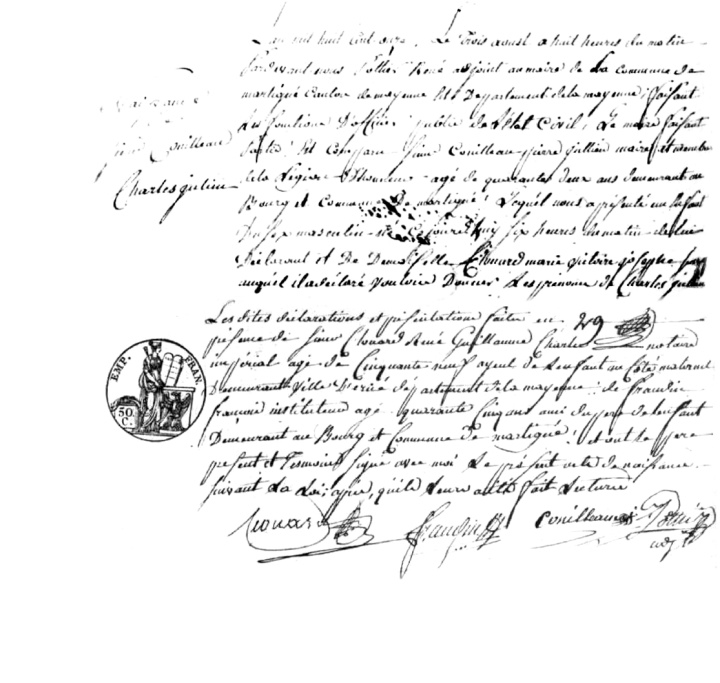 L'an mil huit cent onze, Le trois aoust a huit heures du matin
Pardevant nous Pottier René adjoint au maire de La commune de
martigné Canton de mayenne Departement de la mayenne, faisant
Les fonctions D'officier public de l'Etat Civil, Le maire faisant
partie. Est Comparu Sieur Conilleau pierre jullien maire et membre
de la Légion d'Honneur agé de quarante deux ans demeurant au
Bourg et Commune De martigné Lequel nous a présenté un Enfant
Du sex masculin né ce jourd'huy six heures du matin de lui
Déclarant et De Demoiselle Clouard marie victoire josephe
auquel il a déclaré vouloir Donner Les prenoms de Charles julien
naissance
de
Conilleau
Charles juline
Les dites déclarations et présentation faite en
présence de Sieur Clouard René Guillaume Charles notaire
impérial agé de Cinquante neuf ayeul de L'enfant au Côté maternel
Demeurant Ville D'ernée département de la mayenne, de fraudin
francois instituteur agé quarante Cinq ans ami du pere de L'enfant
Demeurant au Bourg et Commune De martigné, et ont Le pere
present et Temoins signé avec moi Le présent acte de naissance
suivant La Loi; apres, qu'il Leur a été fait Lecture
Clouard fraudin Conilleau Pottier
adj
EMP. FRAN.
50
C.